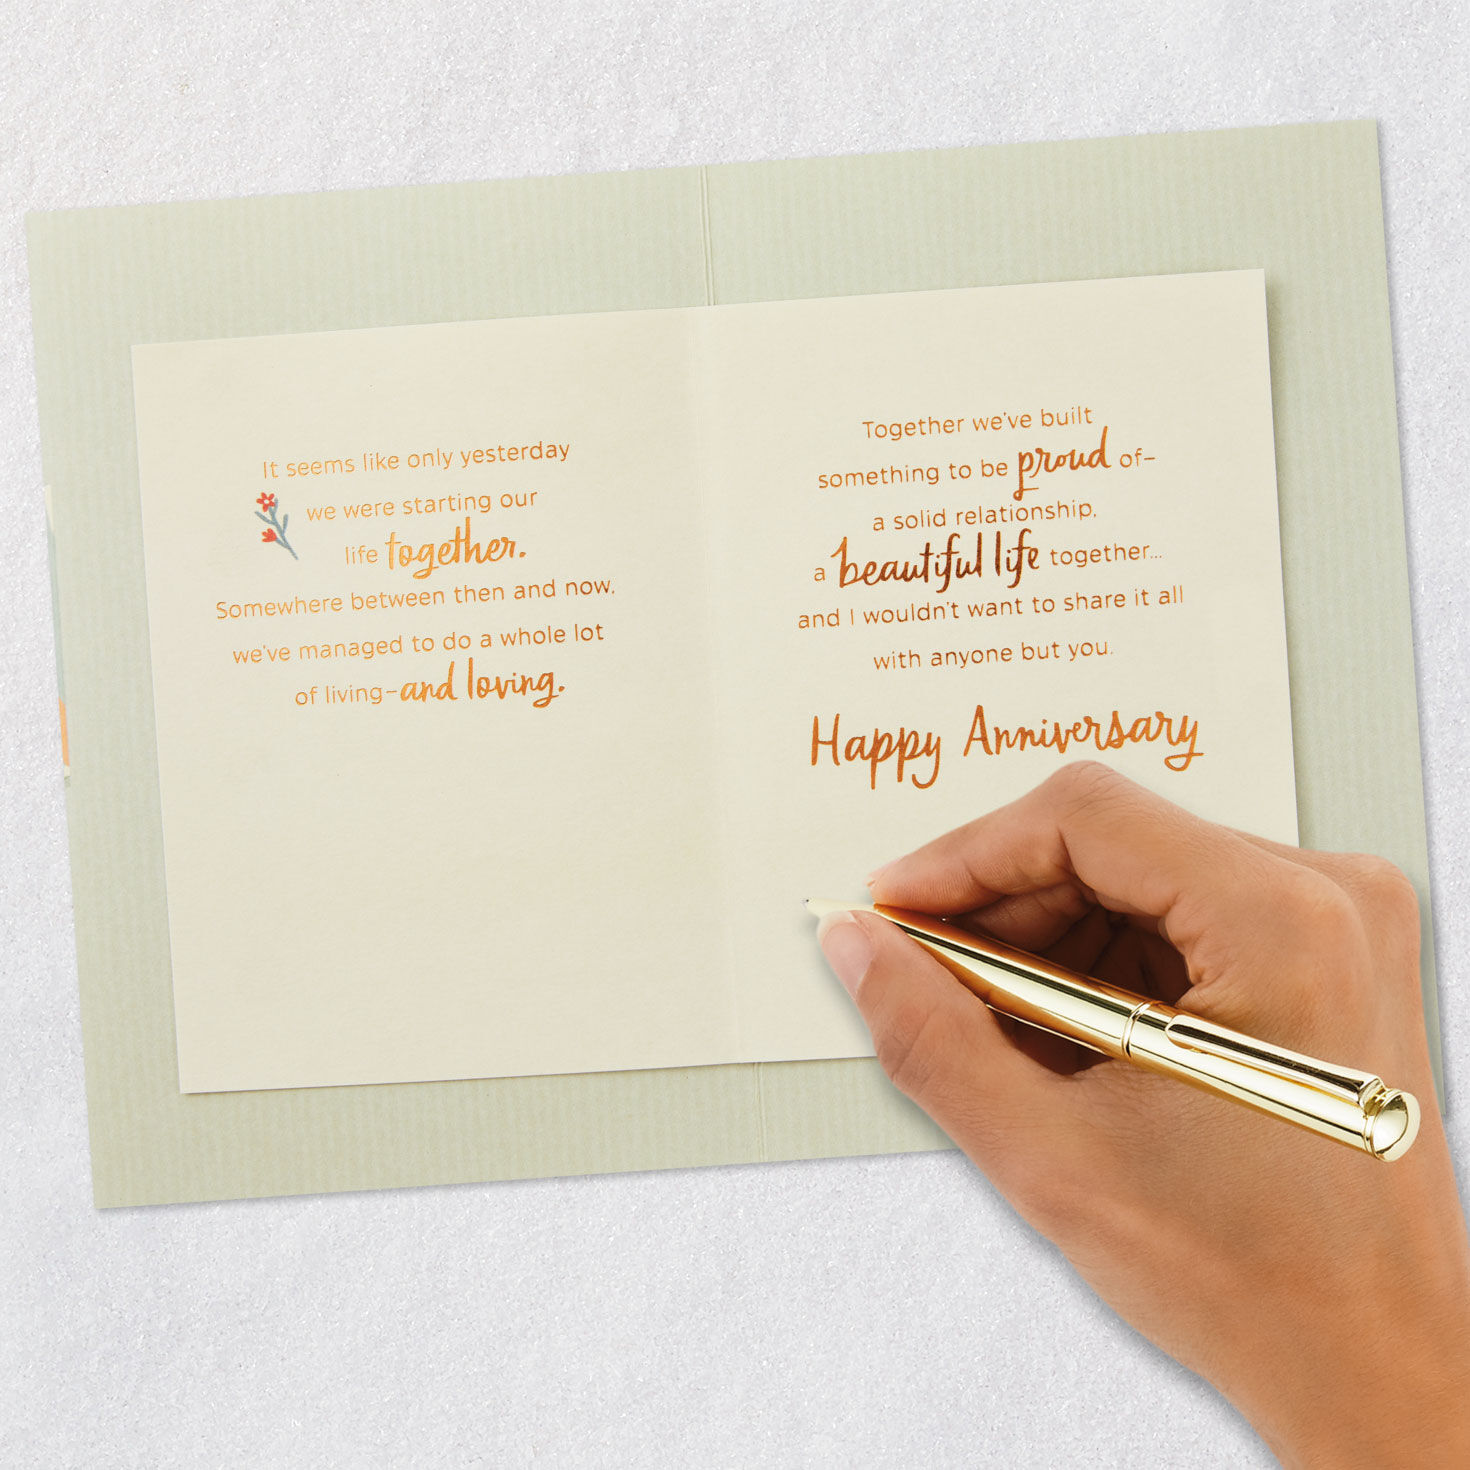 It seems like only yesterday
we were starting our
life together.
Somewhere between then and now,
we've managed to do a whole lot
of living–and loving.
Together we've built
something to be proud of–
a solid relationship,
a beautiful life together...
and I wouldn't want to share it all
with anyone but you.
Happy Anniversary